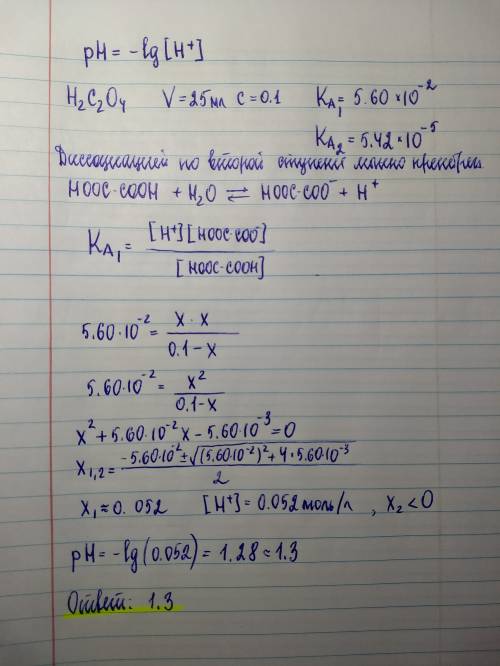 pH = -lg [H⁺]
H₂C₂O₄ V = 25 мл C = 0.1 K_A₁ = 5.60 × 10⁻²
K_A₂ = 5.42 × 10⁻⁵
Диссоциацией по второй ступени можно пренебреч
HOOC-COOH + H₂O ⇌ HOOC-COO⁻ + H⁺
K_A₁ = [H⁺][HOOC-COO⁻] / [HOOC-COOH]
5.60·10⁻² = x · x / 0.1 - x
5.60·10⁻² = x² / 0.1-x
x² + 5.60·10⁻² x - 5.60·10⁻³ = 0
x₁,₂ = -5.60·10⁻² ± √(5.60·10⁻²)² + 4·5.60·10⁻³ / 2
x₁ ≈ 0.052 [H⁺] = 0.052 моль/л , x₂ < 0
pH = -lg (0.052) = 1.28 ≈ 1.3
Ответ: 1.3